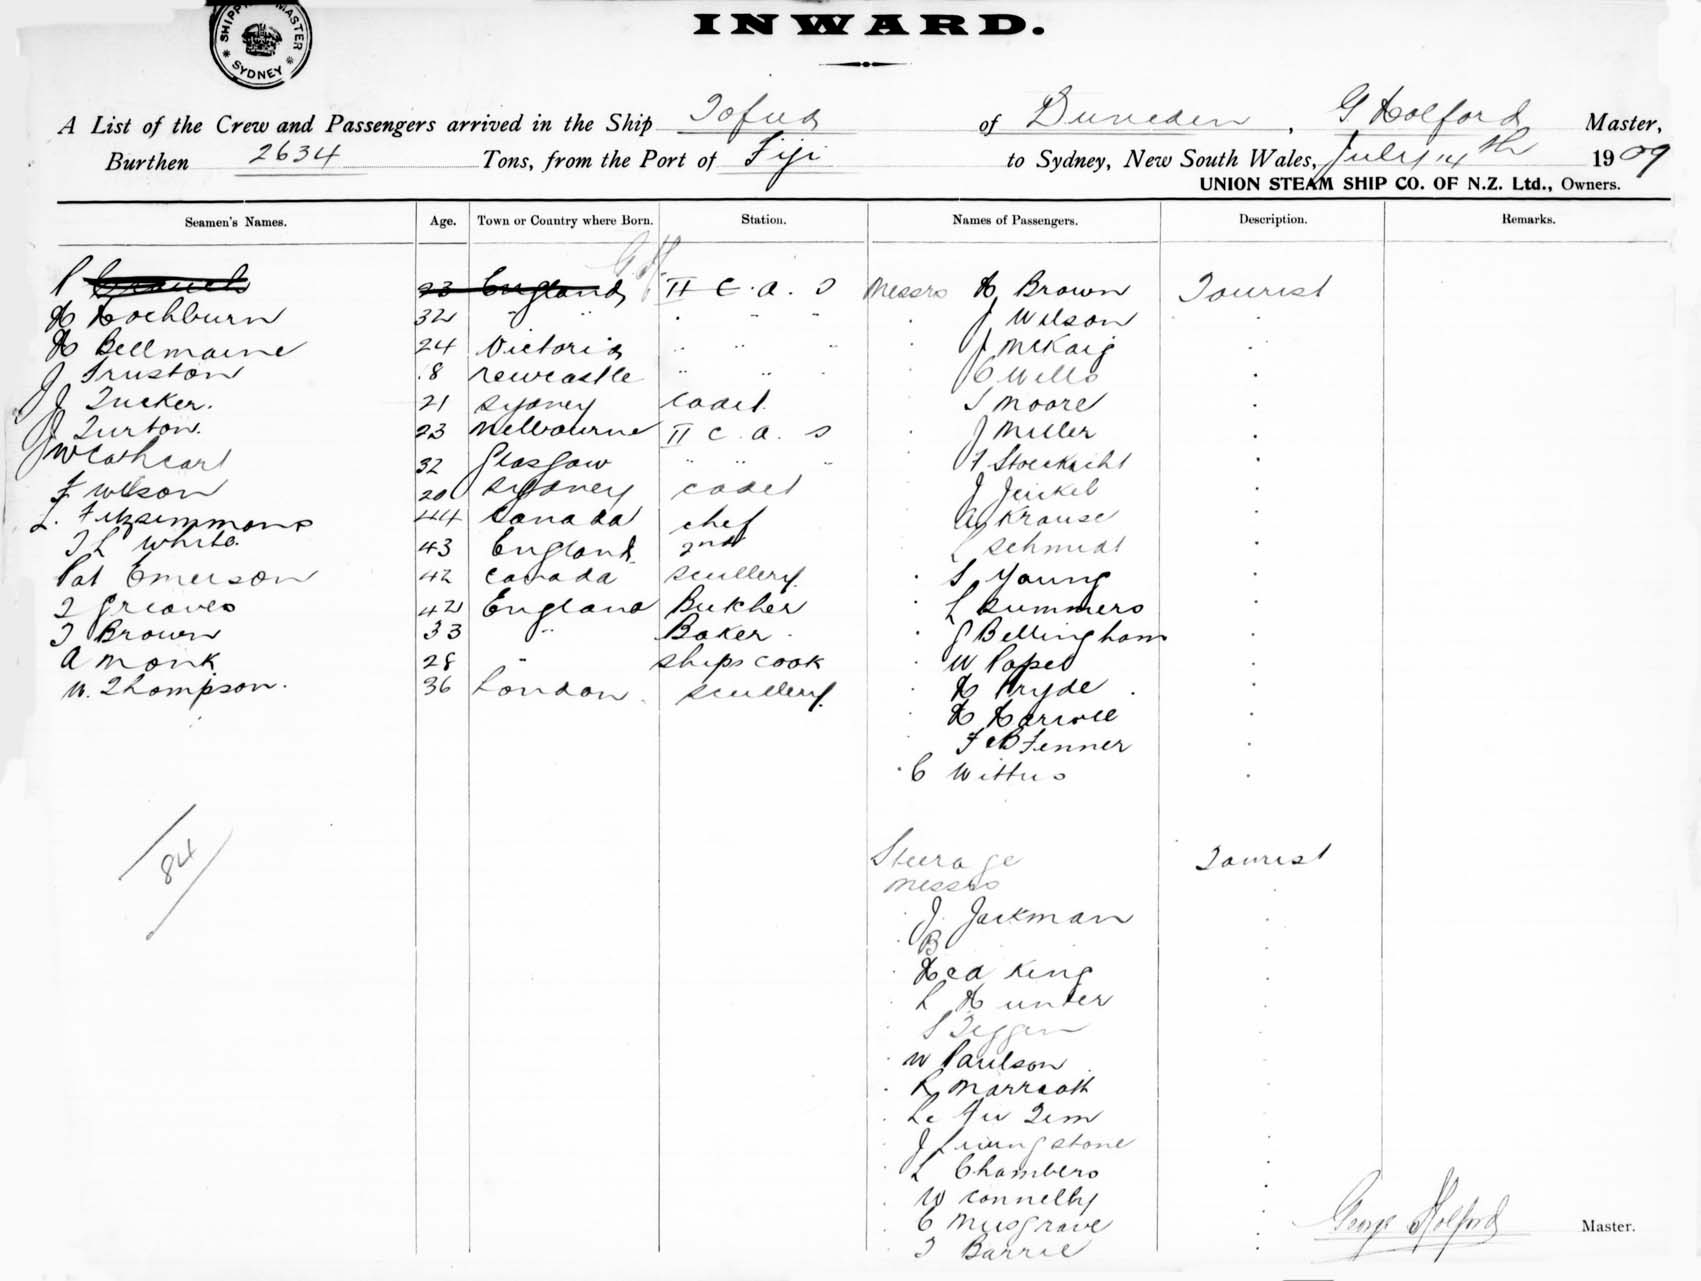 SHIPP MASTER
SYDNEY
INWARD.
A List of the Crew and Passengers arrived in the Ship Tofua of Dunedin, G Holford Master,
Burthen 2634 Tons, from the Port of Fiji to Sydney, New South Wales, July 14th 1909
UNION STEAM SHIP CO. OF N.Z. Ltd., Owners.
Seamen's Names. Age. Town or Country where Born. Station. Names of Passengers. Description. Remarks.
23 England II C. a. S Messrs H Brown Tourist
H Hochburn 32 " " . " " . J Wilson .
H Bellmaine 24 Victoria " " " . J McKaig .
J Truston 18 Newcastle " " . . C Wells .
J Tucker. 21 Sydney Cadet . S Moore .
J Turton. 23 Melbourne II C. a. S . J Miller .
J W Cathcart 32 Glasgow " " " .
F Wilson 20 Sydney cadet J
L. Fitzsimmons 44 Canada chef Krause
T L White. 43 England 2nd L Schmidt
Pat Emerson 42 Canada scullery. . S Young .
T Greaves 42 England Butcher . L Summers .
T Brown 33 " Baker . . G Bellingham .
A Monk 28 " ships cook . W Pope .
W. Thompson. 36 London. scullery. . H Pryde .
. H
. Fenner .
. C .
84
Steerage Tourist
Messrs
. J. Jackman .
B
. King .
. L Hunter .
.
. W Paulson
.
.
. J Livingstone
. L Chambers .
. W Connelly .
. C Musgrave . George Holford Master.
. T Barrie .